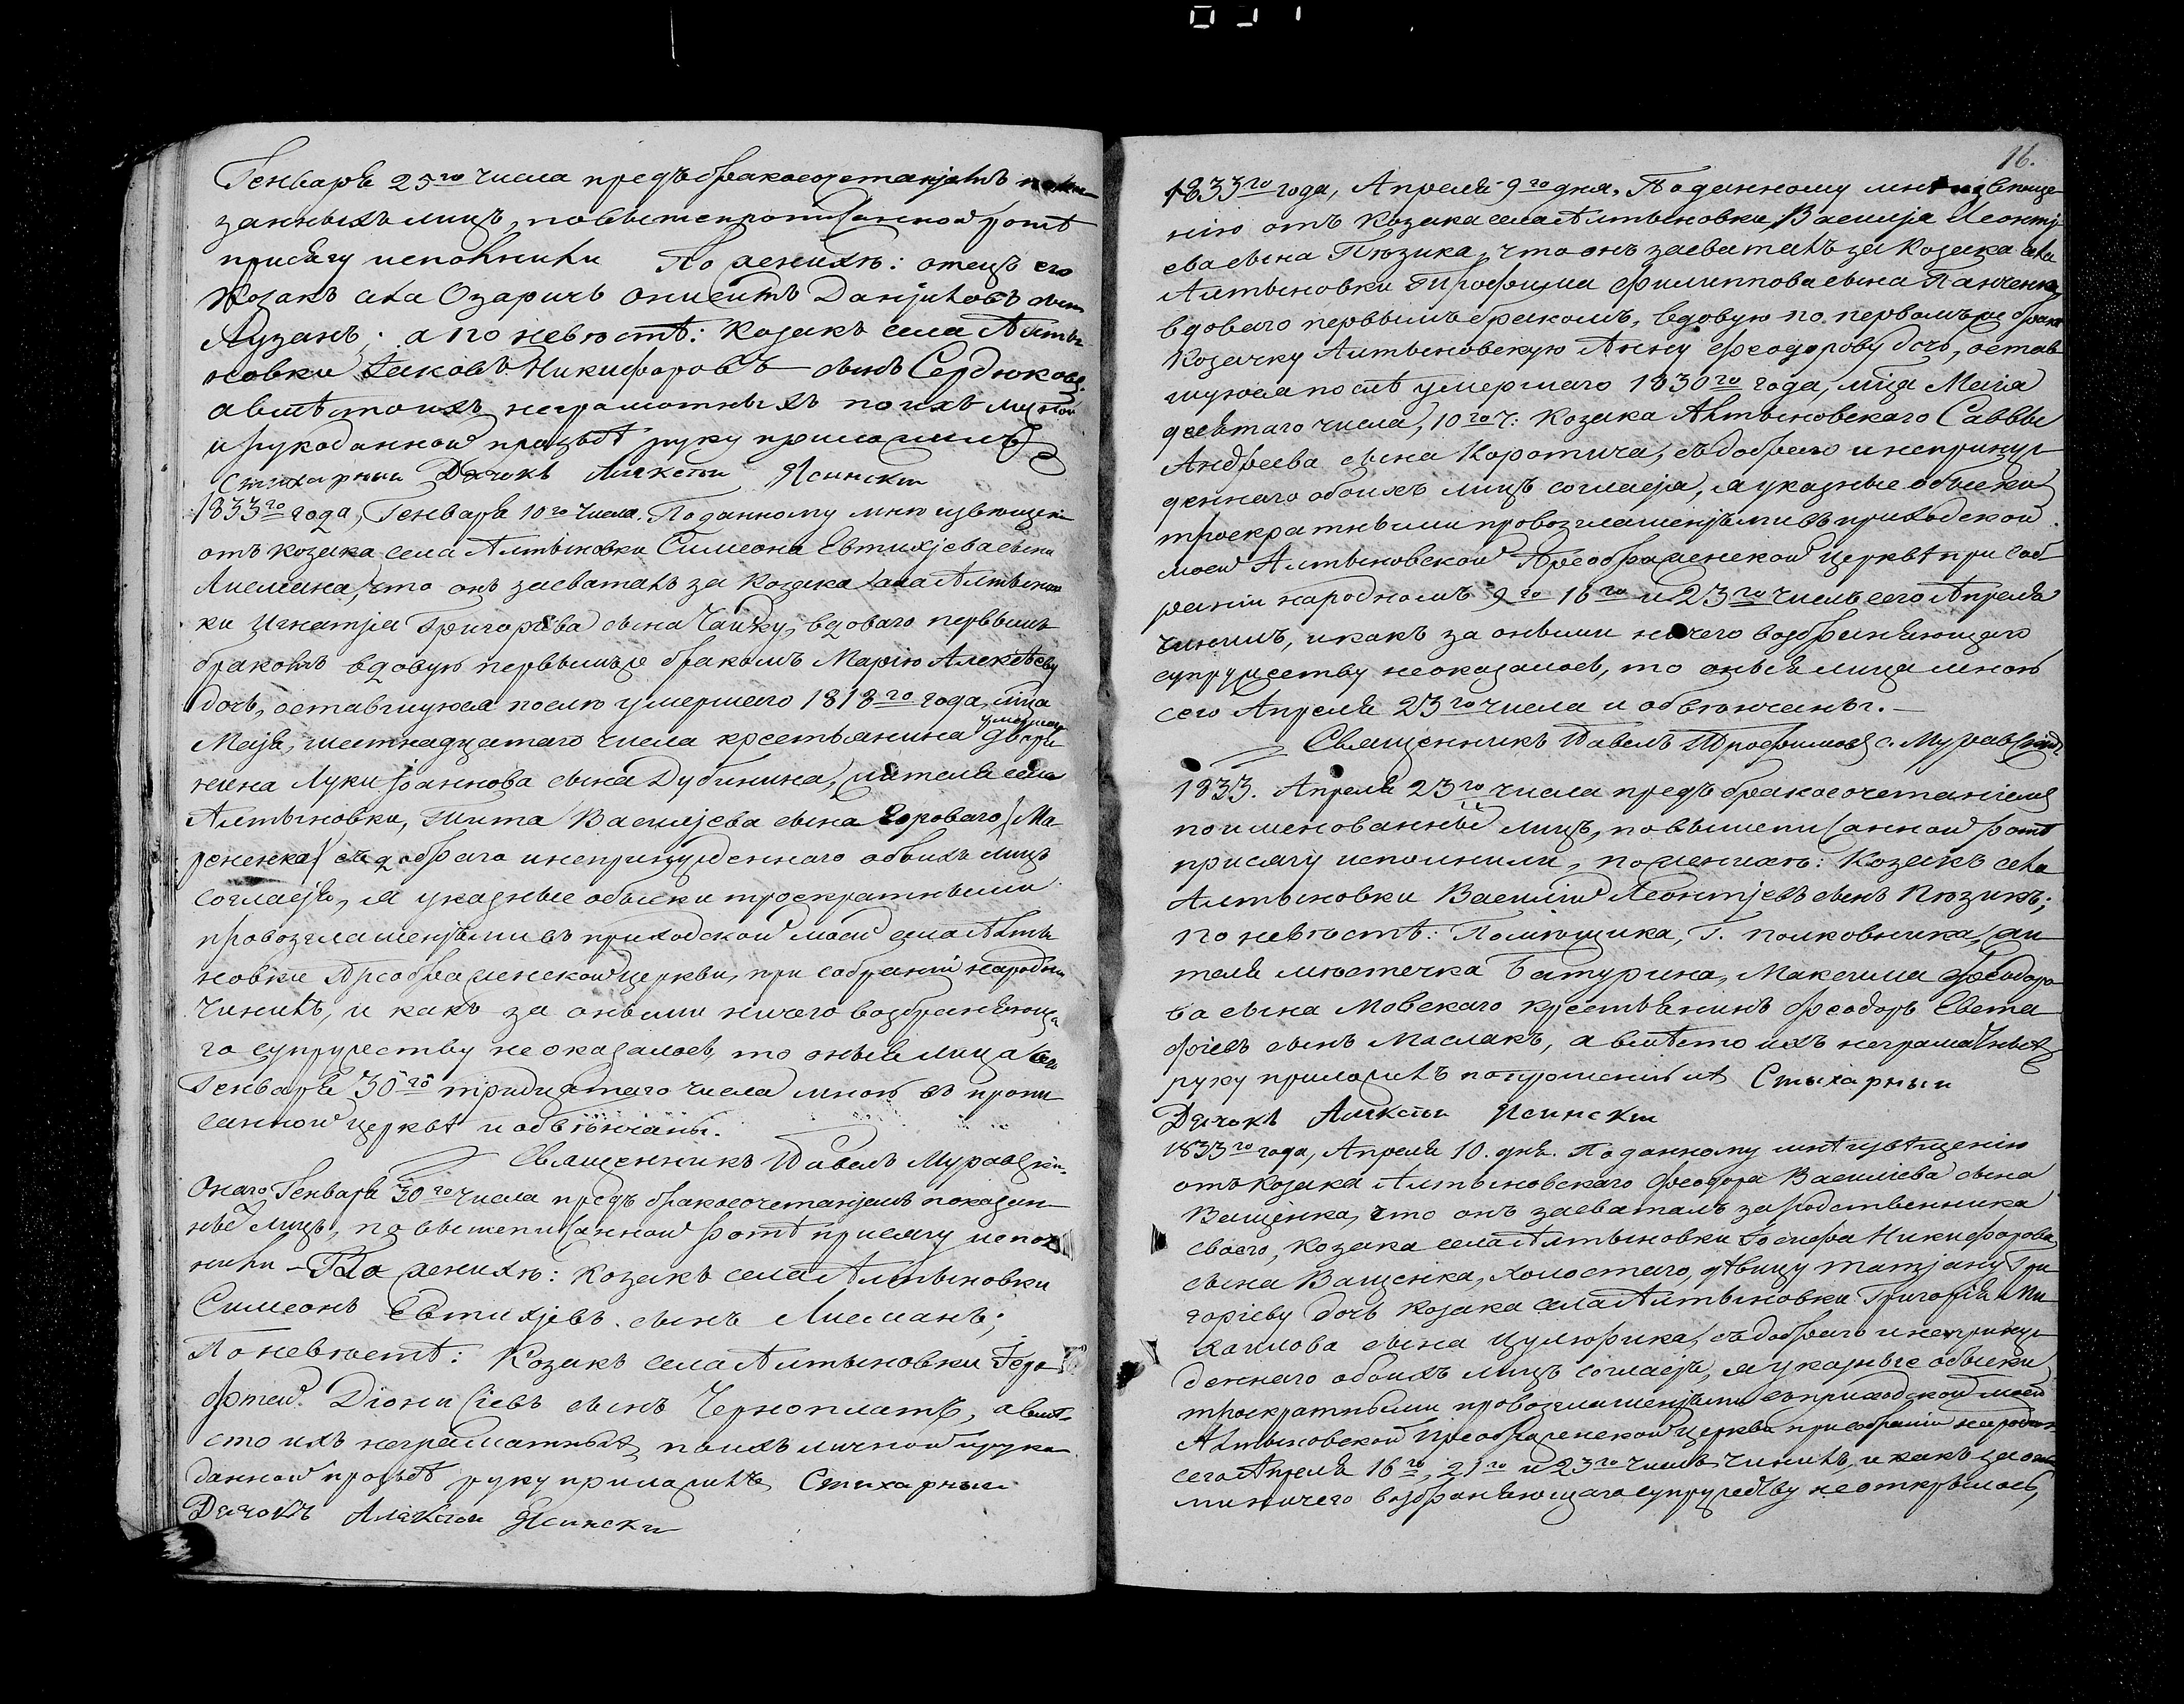 Генваря 25го числа предъ бракосочетаніемъ пока-
занныхъ лицъ, по вышепрописанной ротѣ
присягу исполнили По женихѣ: отецъ его
Козакъ села Озаричъ Онисимъ Даніиловъ сынъ
Лузанъ; а по невѣстѣ: Козакъ села Алты-
новки Іаковъ Никифоровъ сынъ Сердюковъ
а вмѣсто ихъ неграмотныхъ по ихъ личной
и рукоданной прозьбѣ руку приложилъ
Стихарный Дячокъ Алексѣй Ясинскій
1833го года, Генваря 10го числа. По данному мнѣ извѣщенію
отъ козака села Алтыновки Симеона Евтихіева сына
Лисмана, что онъ засваталъ за козака села Алтынов-
ки Игнатія Григорьева сына Чайку, вдоваго первымъ
бракомъ вдовую первымъ же бракомъ Марію Алексѣеву
дочь, оставшуюся послѣ умершаго 1818го года, мца
Маія, шестнадцатаго числа крестьянина умершаго дворя-
нина Луки Іоаннова сына Дубинина, жителя села
Алтыновки, Тита Василіева сына Короваго /Ма-
ренека/ съ добраго и непринужденнаго обоихъ лицъ
согласія, я указные обыски троекратными
провозглашеніями въ приходской моей села Алты-
новки Преображенской церкви, при собраніи народномъ
чинилъ, и какъ за оными ничего возбраняюща-
го супружеству не оказалось, то оныя лица сего
Генваря 30го тридцятаго числа мною въ пропи-
санной церквѣ и обвѣнчаны.
Священникъ Павелъ Муравскій
Онаго Генваря 30го числа предъ бракосочетаніемъ показан-
ныхъ лицъ, по вышеписанной ротѣ присягу испол-
нили – По женихѣ: козакъ села Алтыновки
Симеонъ Евтихіевъ сынъ Лисманъ;
По невѣстѣ: Козакъ села Алтыновки Геро-
фтей Діонисіевъ сынъ Черноплатъ, а вмѣ-
сто ихъ неграматныхъ по ихъ личной и рука-
данной прозьбѣ руку приложилъ Стихарный
Дячокъ Алексѣй Ясинскій
16.
1833го года, Апреля 9го дня. По данному мнѣ извѣще-
нію отъ козака села Алтыновки, Василія Леонтіе-
ва сына Пюзика, что онъ засваталъ за козака села
Алтыновки Трофима Филиппова сына Панченка,
вдоваго первымъ бракомъ, вдовую по первомъ же бракѣ
козачку Алтыновскую Анну Феодорову дочь, остав-
шуюся послѣ умершаго 1830го года, мца Маія
десятаго числа, 10го ч: козака Алтыновскаго Саввы
Андреева сына Коротича, съ добраго и непринуж-
деннаго обоихъ лицъ согласія, я указные обыски
троекратными провозглашеніями въ приходской
моей Алтыновской Преображенской церквѣ при соб-
раніи народномъ 9го 16го и 23го числъ сего Апреля
чинилъ, и какъ за оными ничего возбраняющаго
супружеству не оказалось, то оныя лица мною
сего Апреля 23го числа и обвѣнчаны. –
Священникъ Павелъ Трофимовъ с. Муравскій
1833. Апреля 23го числа предъ бракосочетаніемъ
поименованныхъ лицъ, по вышеписанной ротѣ
присягу исполнили, по женихѣ: Козакъ села
Алтыновки Василій Леонтіевъ сынъ Пюзикъ;
по невѣстѣ: Помѣщика, Г. полковника, жи-
теля мѣстечка Батурина, Максима Феодоро-
ва сына Мовскаго крестьянинъ Феодоръ Евста-
фіевъ сынъ Маслакъ, а вмѣсто ихъ неграматныхъ
руку приложилъ по прошенію ихъ Стыхарный
Дячокъ Алексѣй Ясинскій
1833го года, Апреля 10. дня. По данному мнѣ извѣщенію
отъ козака Алтыновскаго Феодора Василіева сына
Ващенка, что онъ засваталъ за родственника
своего, козака села Алтыновки Іосифа Никифорова
сына Ващенка, холостаго, дѣвицу Татіану Гри-
горіеву дочь козака села Алтыновки Григорія Ми-
хаилова сына Цулюрика, съ добраго и непринуж-
деннаго обоихъ лицъ согласія, я указные обыски
троекратными провозглашеніями въ приходской моей
Алтыновской Преображенской церкви при собраніи народномъ
сего Апреля 16го, 21го и 23го числъ чинилъ, и какъ за оны-
ми ничего возбраняющаго супружеству не открылось,